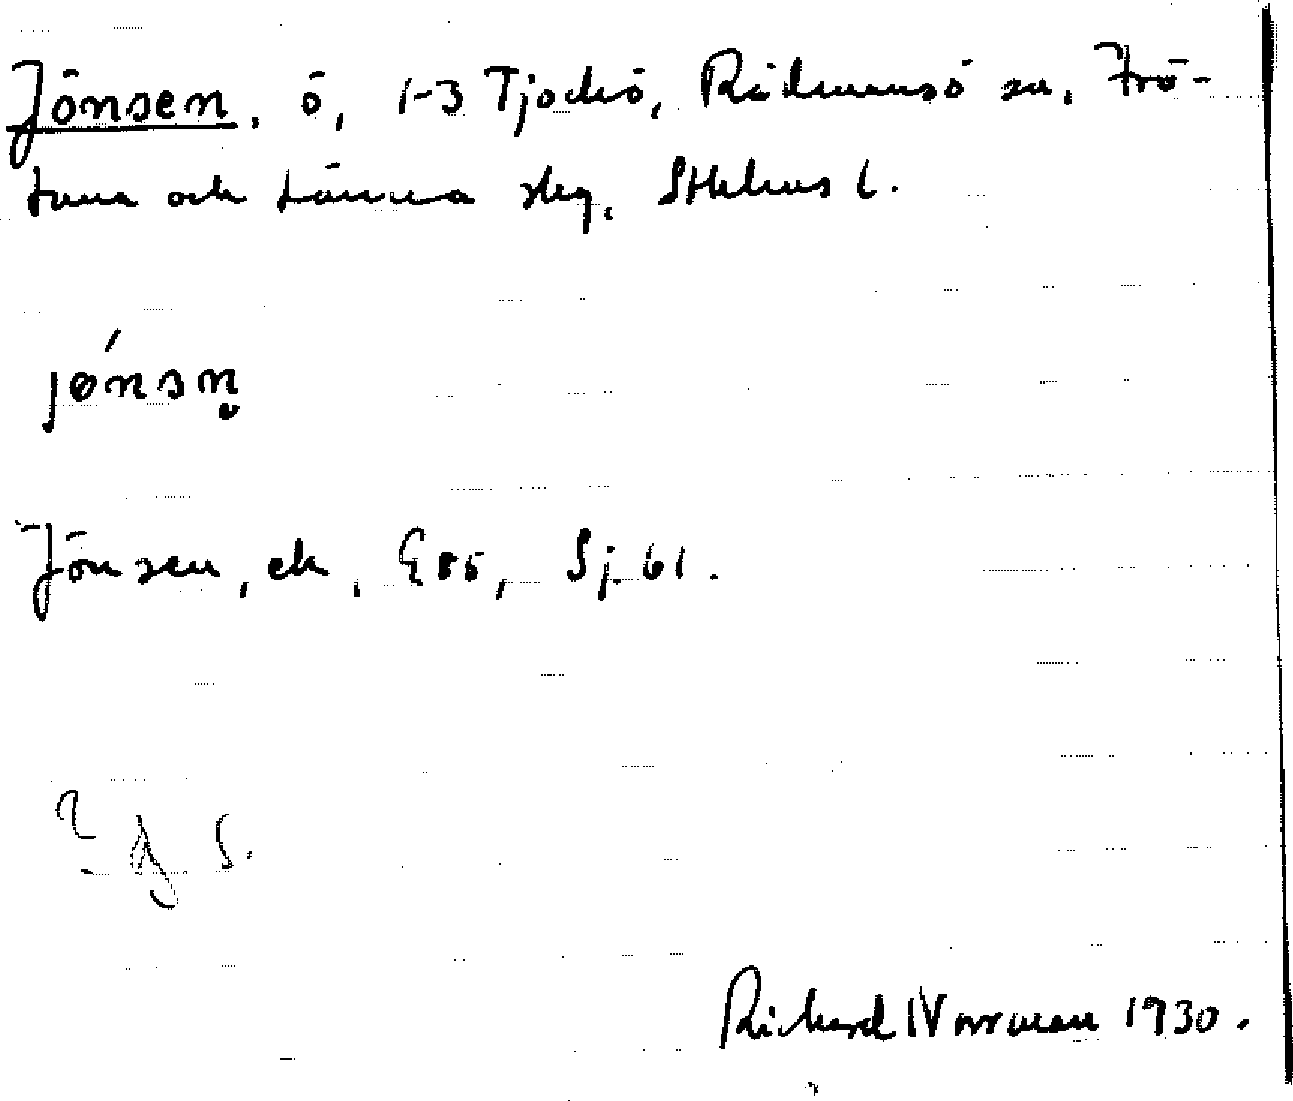 Jönsen, ö, 1-3 Tjockö, Rådmansö sn, Frö-
tuna och Länna skg, Sthlms l.
jǿnsn̥
Jönsen, ek, E 85, Sj. 61.
Richard Norrman 1930.